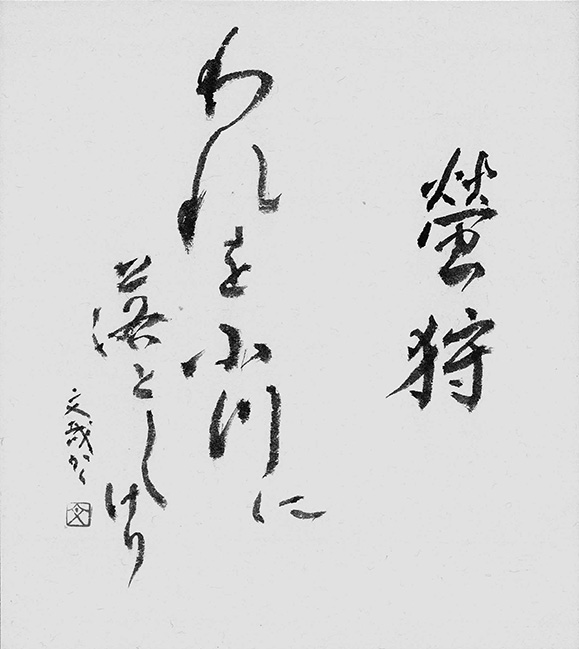 螢狩
われを小川に
落としけり
文哉かく
文